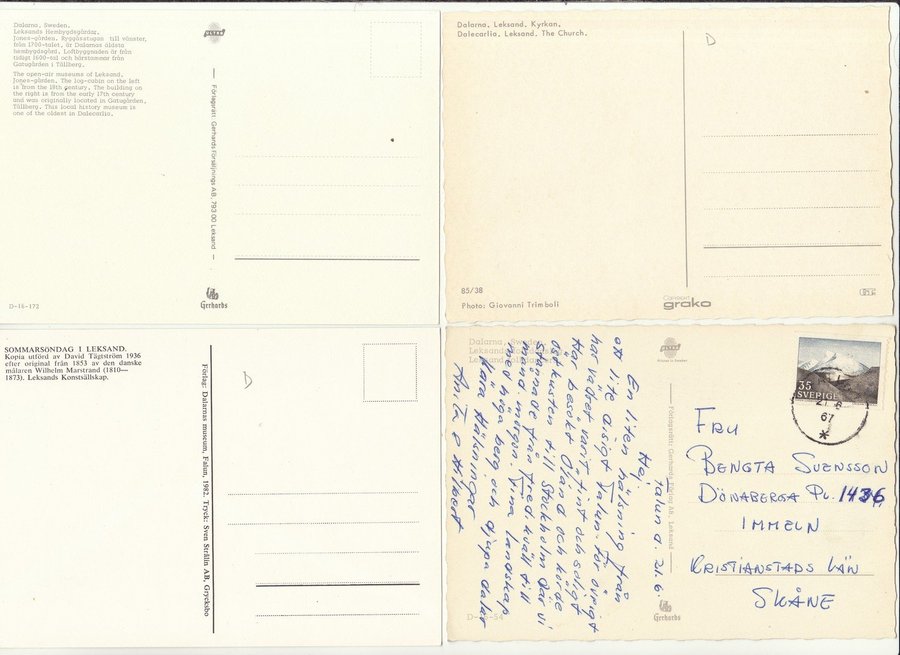 Dalarna, Sweden.
Leksands Hembygdsgårdar.
Jones-gården. Ryggåsstugan till vänster,
från 1700-talet, är Dalarnas äldsta
hembygdsgård. Loftbyggnaden är från
tidigt 1600-tal och härstammar från
Gatugården i Tällberg.
The open-air museums of Leksand.
Jones-gården. The log-cabin on the left
is from the 18th century. The building on
the right is from the early 17th century
and was originally located in Gatugården,
Tällberg. This local history museum is
one of the oldest in Dalecarlia.
— Förlagsrätt: Gerhards Försäljnings AB, 793 00 Leksand —
D-16-172
Gerhards
Dalarna. Leksand. Kyrkan.
Dalecarlia. Leksand. The Church.
D
85/38
Photo: Giovanni Trimboli
grako
SOMMARSÖNDAG I LEKSAND.
Kopia utförd av David Tägtström 1936
efter original från 1853 av den danske
målaren Wilhelm Marstrand (1810—
1873). Leksands Konstsällskap.
Förlag: Dalarnas museum, Falun, 1982. Tryck: Sven Strålin AB, Grycksbo
D
Dalarna, Sweden
Falun d. 21.6.
Hej.
En liten hälsning från
ett lite disigt Falun. För övrigt
har vädret varit fint och soligt
Har besökt Öland och körde
östkusten till Stockholm där vi
stannade från Fred. kväll till
månd. morgon. Fina landskap
med höga berg och djupa dalar
Kära Hälsningar
Anita o Hilbert
Gerhards
35
SVERIGE
21 6
67
FRU
BENGTA SVENSSON
DÖNABERGA PL. 1436
IMMELN
KRISTIANSTADS LÄN
SKÅNE